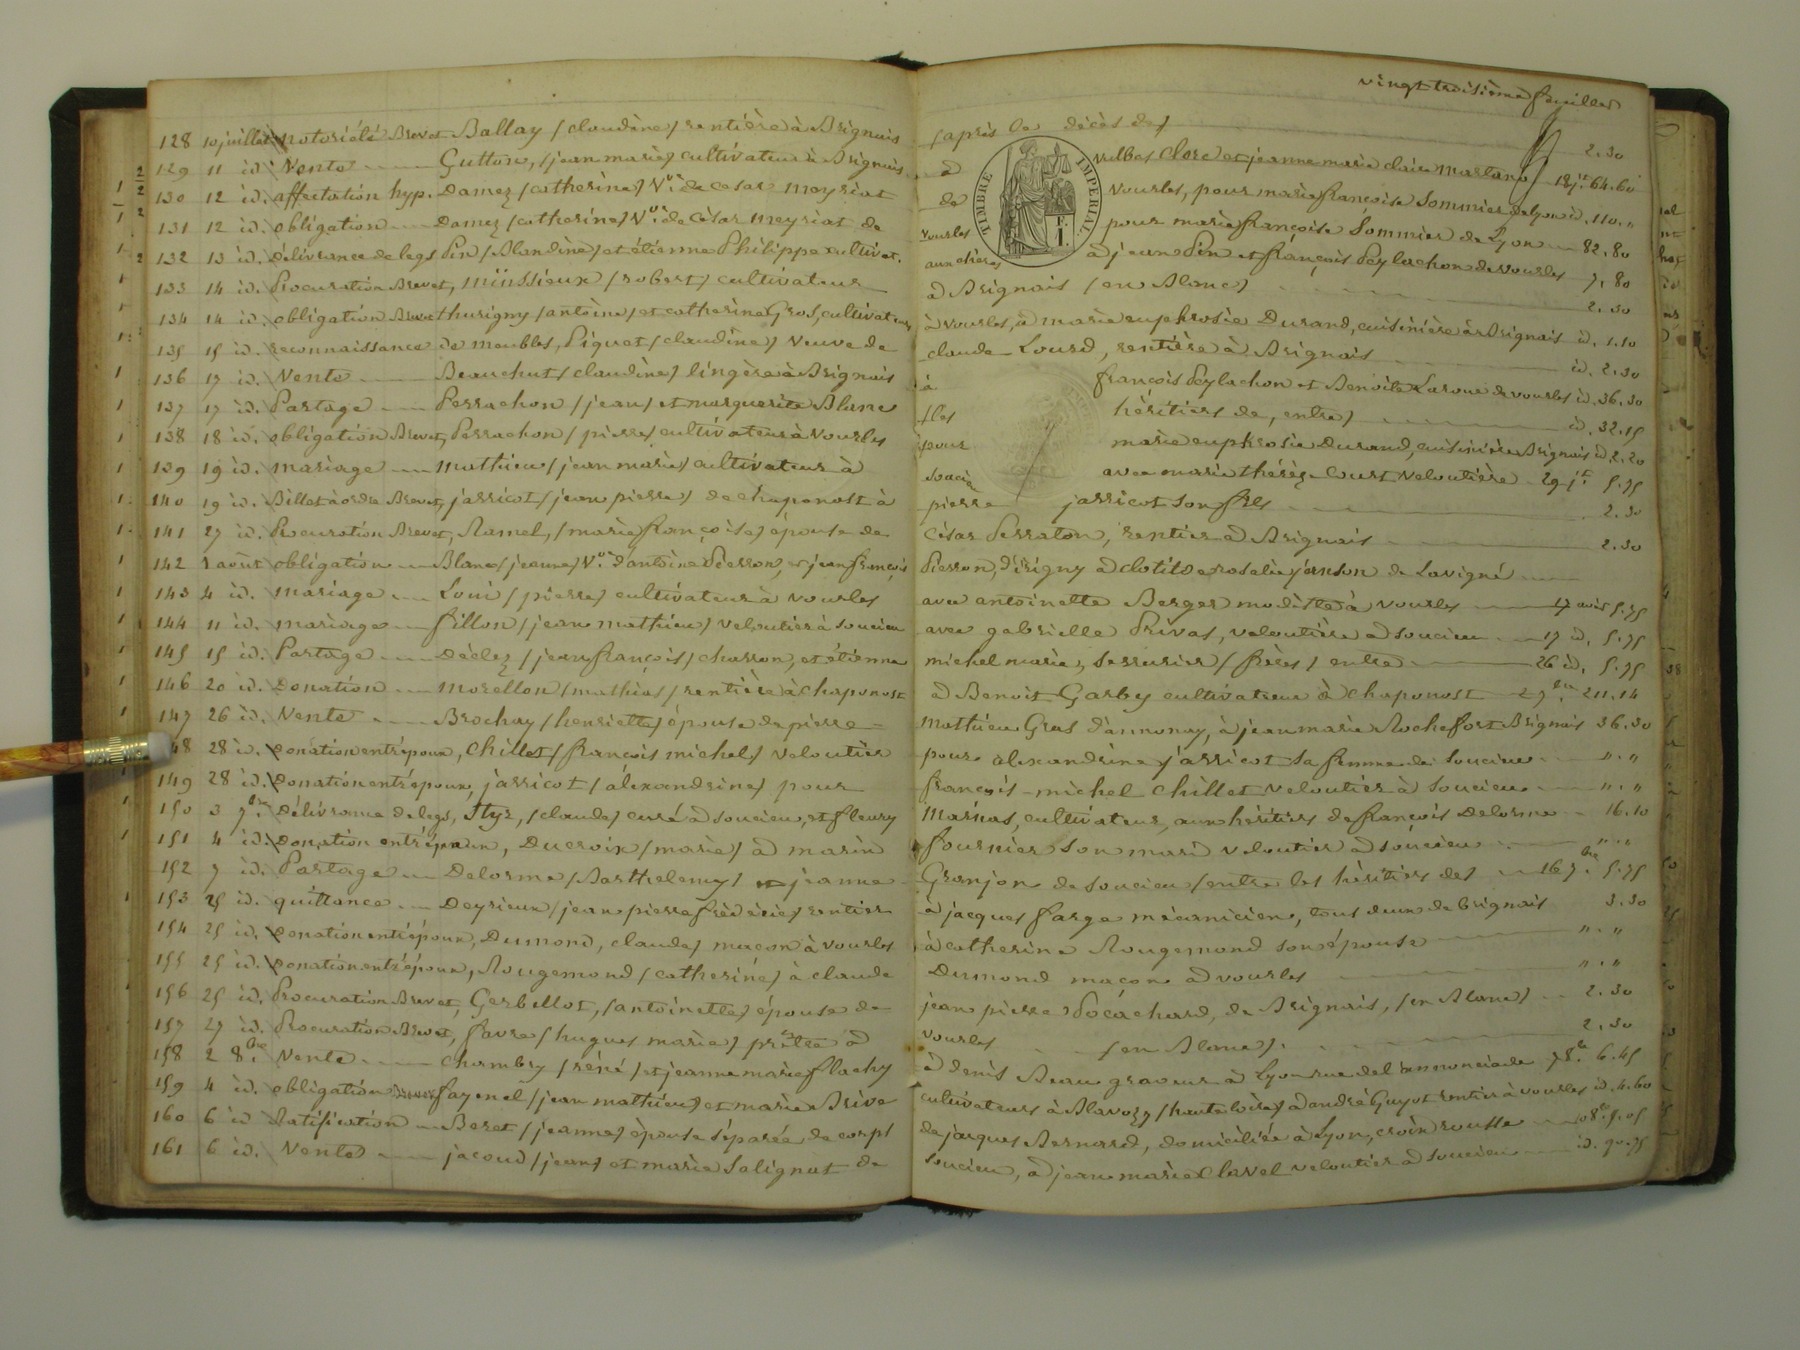 vingt troisième feuillet
128 10 juillet notoriété Brevet Ballay (claudine) rentière à Brignais (après le décès de) 2.30
129 11 id. Vente Gutton, (jean marie) cultivateur à Brignais à claire 18 jt 64.60
130 12 id. affectation hyp. Damez (catherine) Vve de César Meyriat de Vourles, pour marie françoise Sommier de Lyon id. 110. "
131 12 id. obligation Damez (catherine) Vve de César Meyriat de Vourles pour marie françoise Sommier de Lyon 82.80
132 13 id. délivrance de legs Pin (Blandine) et étienne Philippe cultivat. à jean Pin et françois Peylachon de vourles 7.80
133 14 id. Procuration Brevet, (robert) cultivateur à Brignais (en Blanc) 2.30
134 14 id. obligation Brevet thurigny (antoine) et catherine Gros, cultivateurs à vourles, à marie euphrosie Durand, cuisinière à Brignais id. 1.10
135 15 id. reconnaissance de meubles, Piquet (claudine) Veuve de claude Lourd, rentière à Brignais id. 2.30
136 17 id. Vente Beauchut (claudine) lingère à Brignais à françois Peylachon et Benoite Laroue de vourles id. 36.30
137 17 id. Partage Perrachon (jean) et marguerite Blanc (les héritiers de, entre) id. 32.15
138 18 id. obligation Brevet, Perrachon (pierre) cultivateur à Vourles pour marie euphrosie Durand, cuisinière Brignais id. 2.20
139 19 id. mariage mathieu (jean marie) cultivateur à Soucieu avec marie thérèze Court veloutière 29 jt 5.75
140 19 id. Billet à ordre Brevet, jarricot (jean pierre) de chaponost à pierre jarricot son fils 2.30
141 27 id. Procuration Brevet, Ramel, (marie françoise) épouse de César Perraton, rentier à Brignais 2.30
142 1 août obligation Blanc (jeanne) Vve d'antoine Pierron, et jean françois Pierron, d'irigny à clotilde rosalie janson de Lavigné
143 4 id. mariage Loui (pierre) cultivateur à vourles avec antoinette Berger modiste à vourles 17 août 5.75
144 11 id. mariage fillon (jean mathieu) veloutier à soucieu avec gabrielle Privas, veloutière à soucieu 17 id. 5.75
145 15 id. Partage Déclez (jean françois) charron, et étienne michel marie, serrurier (frères) entre 26 id. 5.75
146 20 id. Donation Morellon (mathias) rentière à chaponost à Benoit Garby cultivateur à chaponost 2 7bre 211.14
147 26 id. Vente Brochay (henriette) épouse de pierre mathieu Gras d'annonay, à jean marie Rochefort Brignais 36.30
148 28 id. donation entrépoux, Chillet (françois michel) veloutier pour alexandrine jarricot sa femme de Soucieu " . "
149 28 id. donation entrépoux, jarricot (alexandrine) pour françois-michel Chillet veloutier à Soucieu " . "
150 3 7bre Délivrance de legs, (claude) curé à soucieu, et fleury cultivateur, aux héritiers de françois Delorme 16.10
151 4 id. Donation entrépoux, Ducroix (marie) à marin fournier son mari veloutier à soucieu " . "
152 7 id. Partage Delorme (Barthelemy) et jeanne Granjon de Soucieu (entre les héritiers de) 16 7bre 5.75
153 25 id. quittance Deyrieux (jean pierre frédéric) rentier à jacques farge mécanicien, tous deux de Brignais 3.30
154 25 id. donation entrépoux, Dumond, claude) maçon à vourles à catherine Rougemond son épouse " . "
155 25 id. donation entrépoux, Rougemond (catherine) à claude Dumond maçon à vourles " . "
156 25 id. Procuration Brevet, Gerbellot, (antoinette) épouse de jean pierre Pocachard, de Brignais, (en Blanc) 2.30
157 27 id. Procuration Brevet, favre (hugues marie) prêtre à vourles (en Blanc). 2.30
158 2 8bre Vente Chambry (réné) et jeanne marie flachy à denis Beau graveur à Lyon rue de l'annonciade 7 8bre 6.45
159 4 id. obligation Brevet fayenel (jean mathieu) et marie Brive cultivateurs à Blavozy (haute loire) à andré Guyot rentier à vourles id. 4.60
160 6 id Ratification Beret (jeanne) épouse séparée de corps de jacques Bernard, domiciliée à Lyon, croix rousse
161 6 id. Vente jacoud (jean) et marie Salignat de Soucieu, à jean marie Clavel veloutier à soucieu id. 90.75
TIMBRE IMPÉRIAL